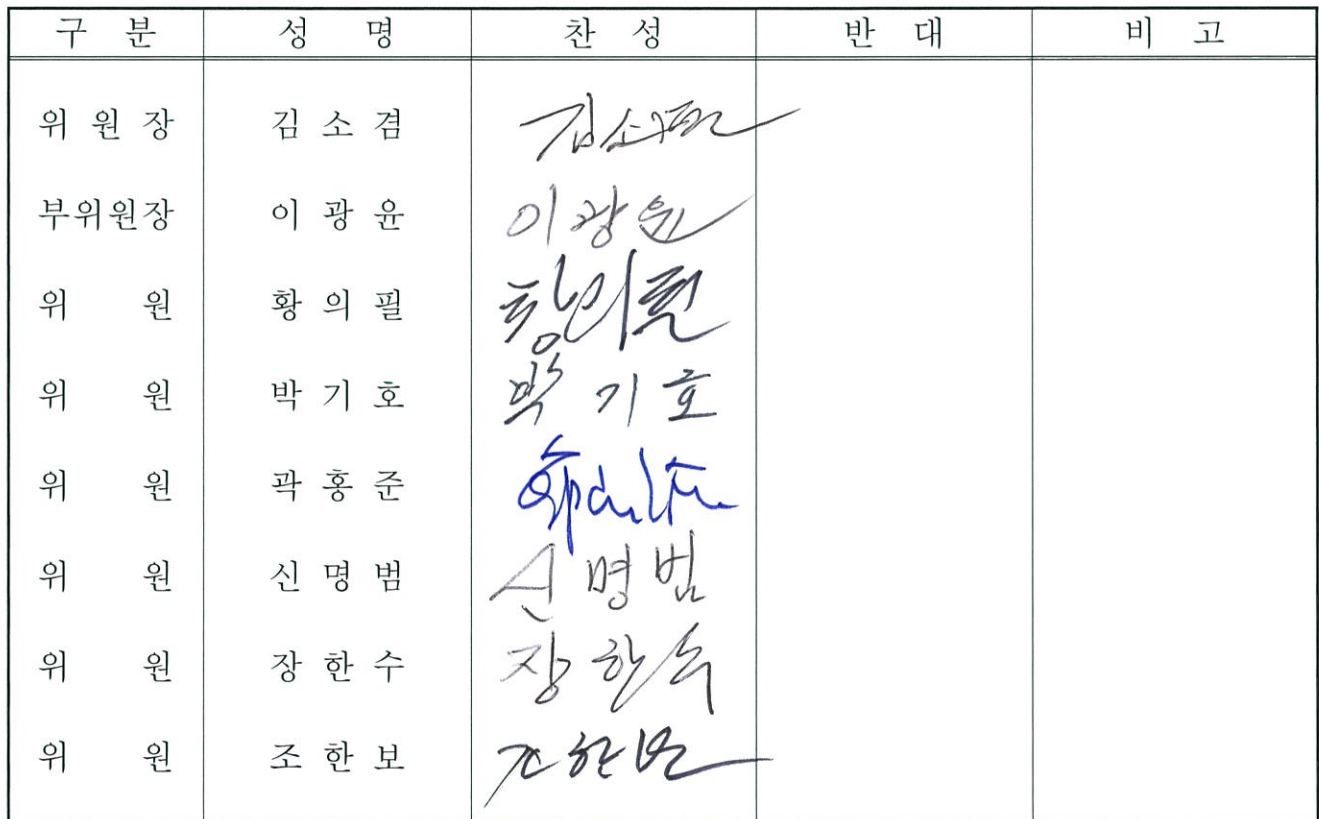 구 분 성 명 찬 성 반 대 비 고
위 원 장 김 소 겸 김소겸
부위원장 이 광 윤 이광윤
위 원 황 의 필 황의필
위 원 박 기 호 박기호
위 원 곽 홍 준
위 원 신 명 범 신명범
위 원 장 한 수 장한수
위 원 조 한 보 조한보